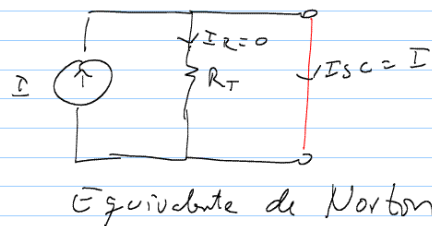 I R = 0
I
R T
I SC = I
Equivalente de Norton